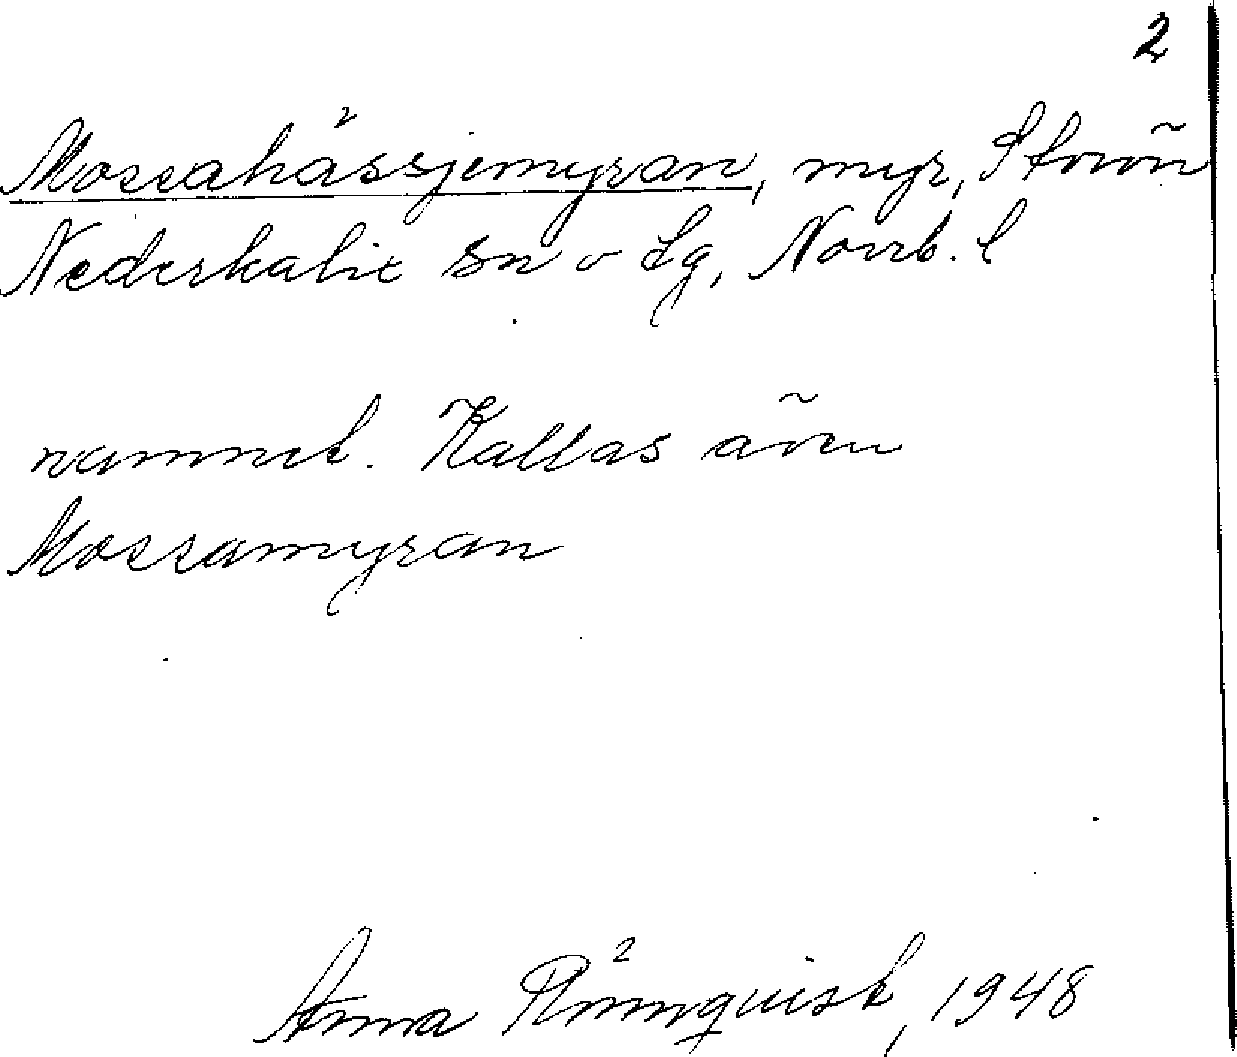 2
Mossahässjemyran, myr, Storön
Nederkalix sn o Lg, Norrb. l
namnet. Kallas även
Mossamyran
Anna Rönnquist, 1948